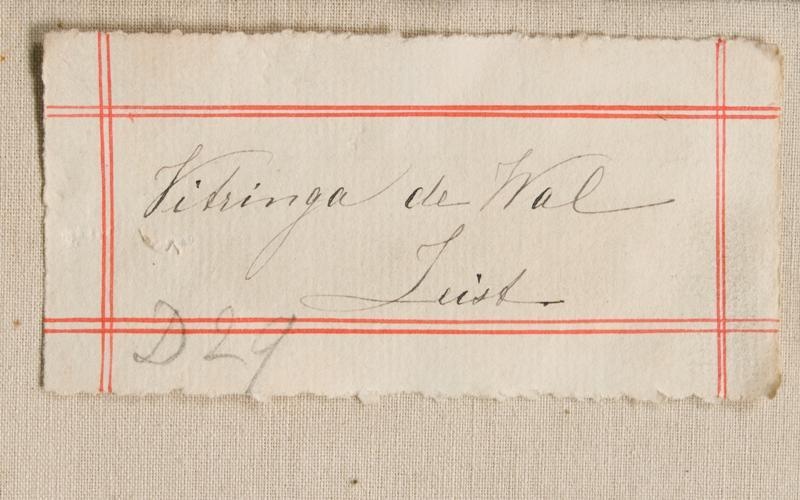 Vitringa de Wal
Zeist.
D 29